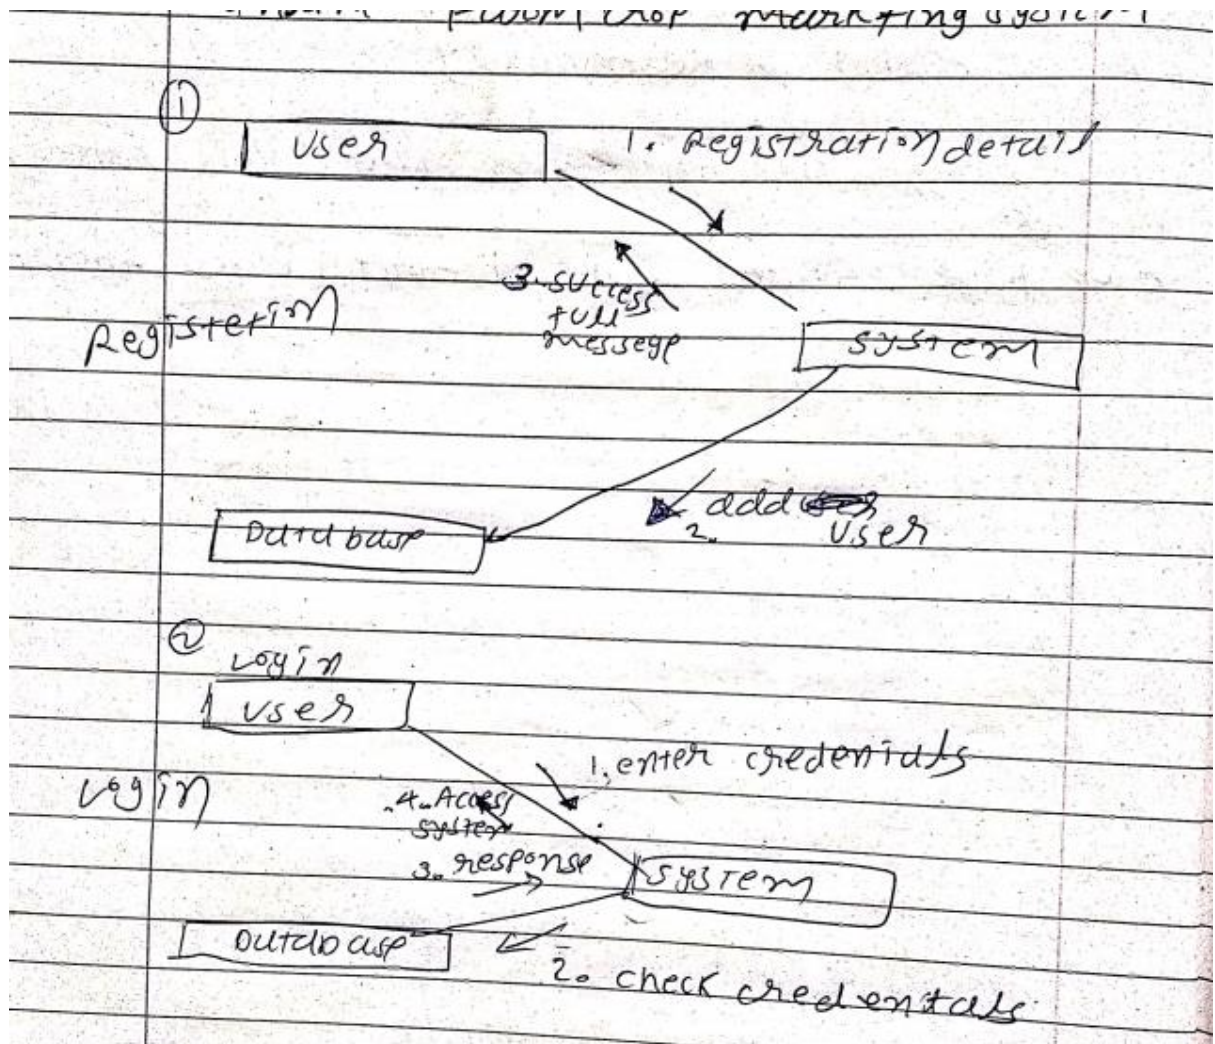 crop markting system
1
User
1. Registration detail
3. success
full
messege
Registetion
system
2. add
User
Database
2
login
User
1. enter credentials
login
4. Access
system
3. response
system
Database
2. check credentials